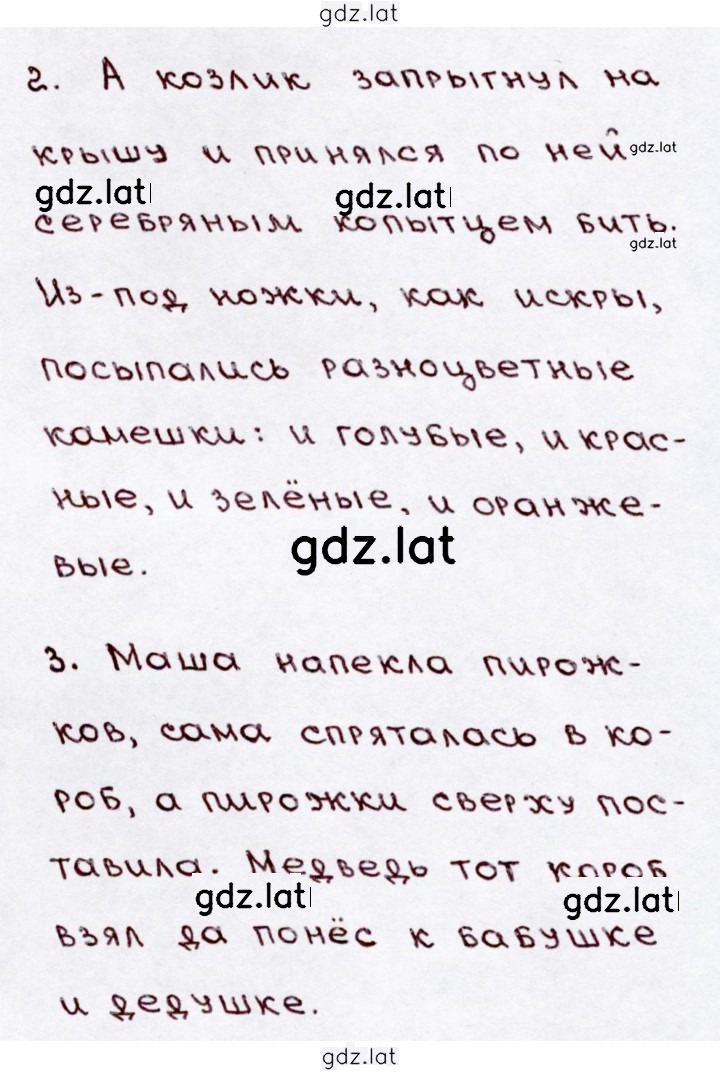 gdz.lat
2. А козлик запрыгнул на
крышу и принялся по ней gdz.lat
gdz.lat gdz.lat
серебряным копытцем бить.
gdz.lat
Из-под ножки, как искры,
посыпались разноцветные
камешки: и голубые, и крас-
ные, и зелёные, и оранже-
gdz.lat
вые.
3. Маша напекла пирож-
ков, сама спряталась в ко-
роб, а пирожки сверху пос-
тавила. Медведь тот короб
gdz.lat gdz.lat
взял да понёс к бабушке
и дедушке.
gdz.lat